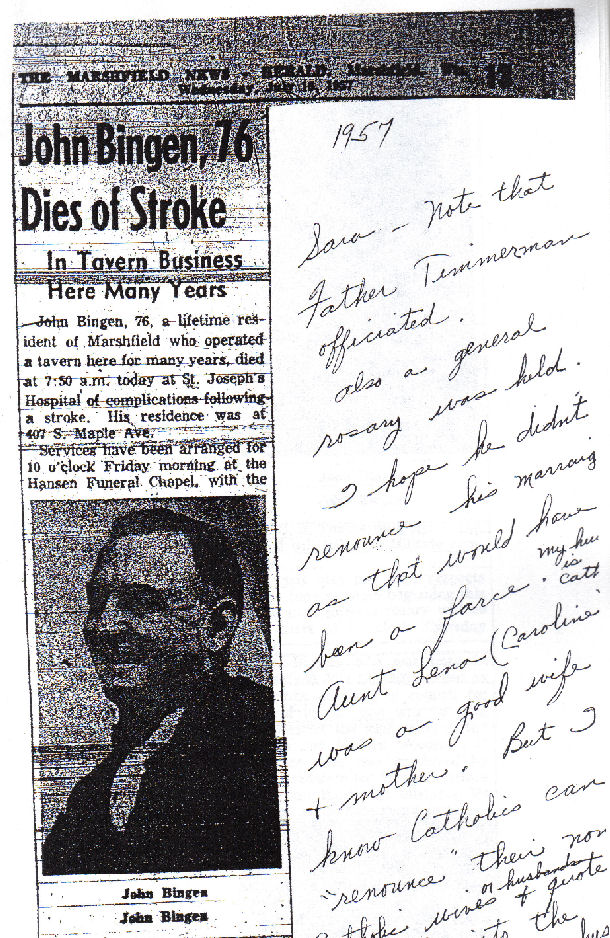 THE MARSHFIELD NEWS - HERALD, Marshfield, Wis. 13
Wednesday, July 10, 1957
John Bingen, 76
Dies of Stroke
In Tavern Business
Here Many Years
John Bingen, 76, a lifetime res-
ident of Marshfield who operated
a tavern here for many years, died
at 7:50 a.m. today at St. Joseph's
Hospital of complications following
a stroke. His residence was at
407 S. Maple Ave.
Services have been arranged for
10 o'clock Friday morning at the
Hansen Funeral Chapel, with the
John Bingen
John Bingen
1957
Sara - Note that
Father Timmerman
officiated.
also a general
rosary was held.
I hope he didn't
renounce his marraig
as that would have
been a farce. my hus
is
Cath
Aunt Lena (Caroline
was a good wife
+ mother. But I
know Catholics can
"renounce" their non
or husbands
wives + quote
the